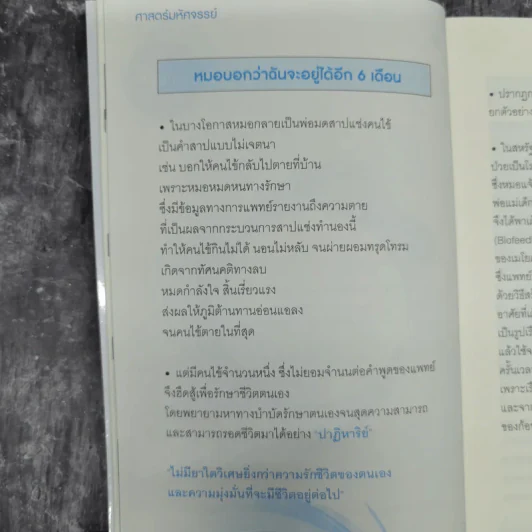 ศาสตร์มหัศจรรย์
หมอบอกว่าฉันจะอยู่ได้อีก 6 เดือน
• ในบางโอกาสหมอกลายเป็นพ่อมดสาปแช่งคนไข้
เป็นคำสาปแบบไม่เจตนา
เช่น บอกให้คนไข้กลับไปตายที่บ้าน
เพราะหมอหมดหนทางรักษา
ซึ่งมีข้อมูลทางการแพทย์รายงานถึงความตาย
ที่เป็นผลจากกระบวนการสาปแช่งทำนองนี้
ทำให้คนไข้กินไม่ได้ นอนไม่หลับ จนผ่ายผอมทรุดโทรม
เกิดจากทัศนคติทางลบ
หมดกำลังใจ สิ้นเรี่ยวแรง
ส่งผลให้ภูมิต้านทานอ่อนแอลง
จนคนไข้ตายในที่สุด
• แต่มีคนไข้จำนวนหนึ่ง ซึ่งไม่ยอมจำนนต่อคำพูดของแพทย์
จึงฮึดสู้เพื่อรักษาชีวิตตนเอง
โดยพยายามหาทางบำบัดรักษาตนเองจนสุดความสามารถ
และสามารถรอดชีวิตมาได้อย่าง "ปาฏิหาริย์"
"ไม่มียาใดวิเศษยิ่งกว่าความรักชีวิตของตนเอง
และความมุ่งมั่นที่จะมีชีวิตอยู่ต่อไป"
• ปรากฏก
ยกตัวอย่าง
• ในสหรัฐ
ป่วยเป็นโ
ซึ่งหมอแจ้
พ่อแม่เด็ก
จึงได้พาเ
(Biofeed
ของเมโย
ซึ่งแพทย์
ด้วยวิธีส
อาศัยที่แ
เป็นรูปเรื
แล้วใช้จ
ครั้นเวล
เพราะเรื
และจาก
ของก้อ